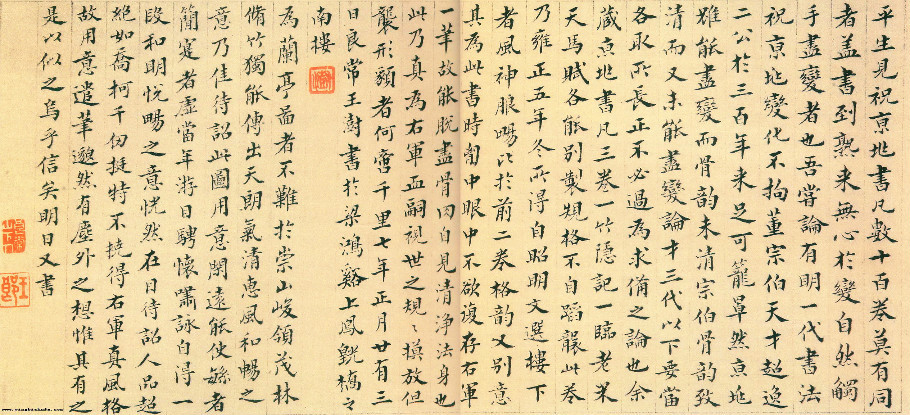 平生見祝京兆書凡數十百卷莫有同
者盖書到熟来無心於變自然觸
手盡變者也吾嘗論有明一代書法
祝京兆變化不拘董宗伯天才超逸
二公於三百年来足可籠罩然京兆
雖能盡變而骨韵未清宗伯骨韵致
清而又未能盡變論才三代以下要當
各取所長正不必過為求備之論也余
蔵京兆書凡三卷一竹隠記一臨老米
天馬賦各能别製規格不自蹈襲此卷
乃雍正五年冬所得自昭明文選樓下
者風神服暢比於前二卷格韵又别意
其為此書時胷中眼中不欲復存右軍
一筆故能脱盡骨肉自見清浄法身也
此乃真為右軍血嗣視世之規〻摸放但
襲形貌者何啻千里七年正月廿有三
日良常王澍書於梁鴻谿上鳳橋之
南樓
為蘭亭啚者不難於崇山峻領茂林
脩竹獨能傳出天朗氣清恵風和暢之
意乃佳待詔此圖用意閑遠能使者
簡寔者虚當年游目騁懷嘯詠自得一
段和明悦暢之意恍然在目待詔人品超
絶如喬柯千仞挺特不撓得右軍真風格
故用意遣筆邈然有塵外之想惟其有之
是以似之烏乎信矣明日又書